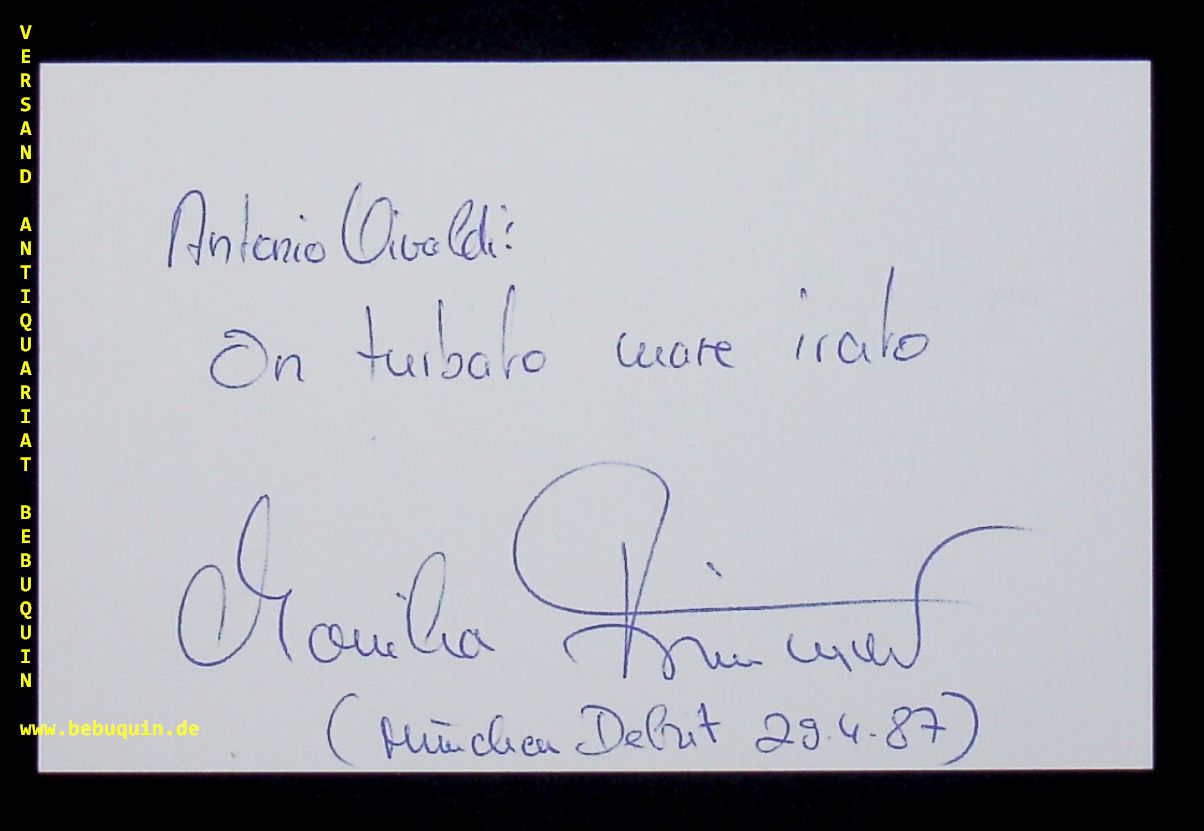 VERSAND ANTIQUARIAT BEBUQUIN
www.bebuquin.de
Antonio Vivaldi:
In turbato mare irato
Monika
(München Debut 29.4.87)